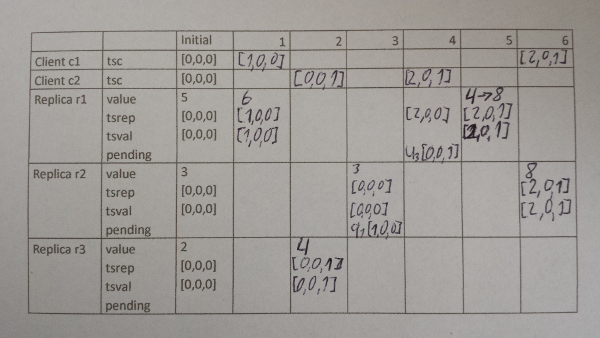 Initial 1 2 3 4 5 6
Client c1 tsc [0,0,0] [1,0,0] [2,0,1]
Client c2 tsc [0,0,0] [0,0,1] [2,0,1]
Replica r1 value 5 6 4→8
tsrep [0,0,0] [1,0,0] [2,0,0] [2,0,1]
tsval [0,0,0] [1,0,0] [2,0,1]
pending u3[0,0,1]
Replica r2 value 3 3 8
tsrep [0,0,0] [0,0,0] [2,0,1]
tsval [0,0,0] [0,0,0] [2,0,1]
pending q1[1,0,0]
Replica r3 value 2 4
tsrep [0,0,0] [0,0,1]
tsval [0,0,0] [0,0,1]
pending